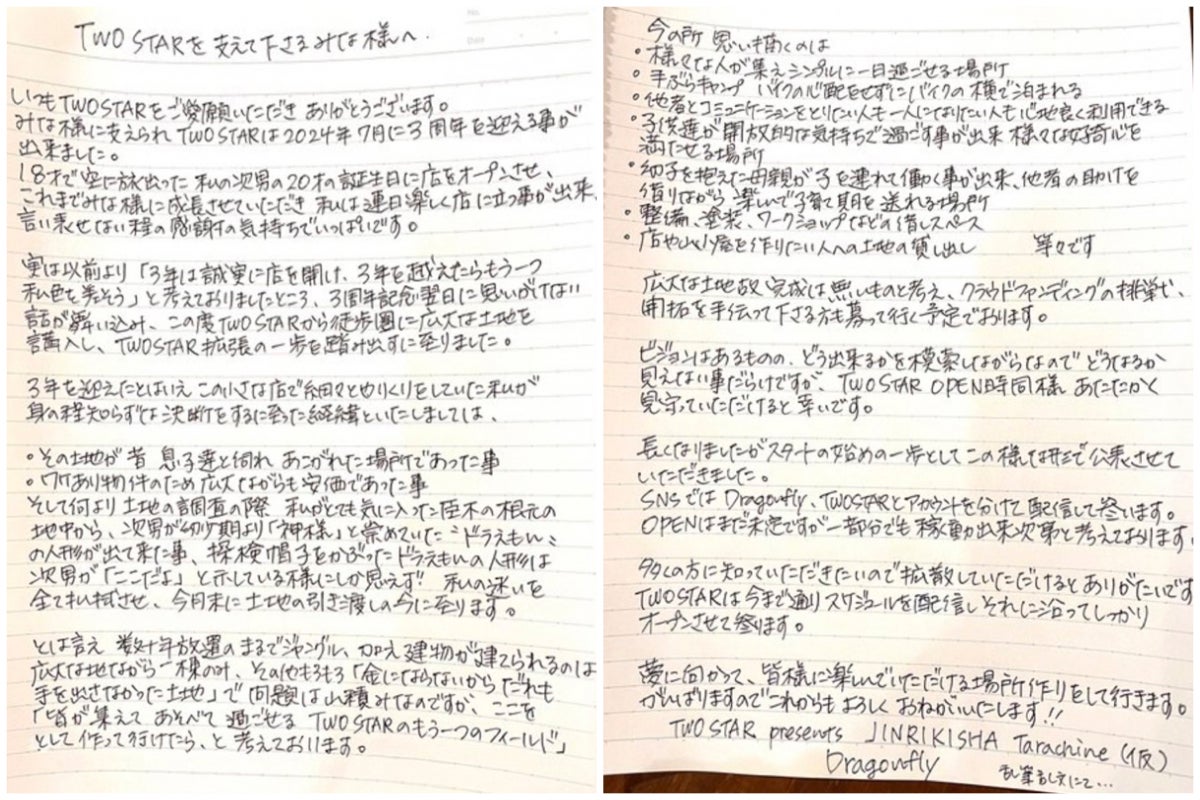 TWO STARを支えて下さるみな様へ.
いつもTWO STARをご愛顧いただき ありがとうございます。
みな様に支えられ TWO STARは2024年7月に3周年を迎える事が
出来ました。
18才で空に旅出った 私の次男の20才の誕生日に店をオープンさせ、
これまでみな様に成長させていただき 私は連日楽しく店に立つ事が出来、
言い表せない程の感謝の気持ちでいっぱいです。
実は以前より「3年は誠実に店を開け、3年を越えたらもう一つ
私色を表そう」と考えておりましたところ、3周年記念翌日に思いがけない
話が舞い込み、この度TWO STARから徒歩圏に広大な土地を
購入し、TWO STAR拡張の一歩を踏み出すに至りました。
3年を迎えたとはいえ この小さな店で細々とやりくりをしていた私が
身の程知らずな決断をするに至った経緯といたしましては、
• その土地が昔 息子達と訪れ あこがれた場所であった事
• ワケあり物件のため 広大ながらも安価であった事
そして何より 土地の調査の際 私がとても気に入った巨木の根元の
地中から、次男が幼少期より「神様」と崇めていた“ドラえもん”
の人形が出て来た事、探検帽子をかぶったドラえもんの人形は
次男が「ここだよ」と示している様にしか思えず 私の迷いを
全て払拭させ、今月末に土地の引き渡しの今に至ります。
とは言え 数十年放置のまるでジャングル、加え建物が建てられるのは
広大な地ながら一棟のみ、その他もろもろ「金にならないからだれも
手を出さなかった土地」で 問題は山積みなのですが、ここを
「皆が集えて あそべて 過ごせる TWO STARのもう一つのフィールド」
として作って行けたら、と考えております。
今の所 思い描くのは
• 様々な人が集え シンプルに一日過ごせる場所
• 手ぶらキャンプ バイクの心配をせずにバイクの横で泊まれる
• 他者とコミュニケーションをとりたい人も一人になりたい人も心地良く利用できる
• 子供達が開放的な気持ちで過ごす事が出来 様々な好奇心を
満たせる場所
• 幼子を抱えた母親が子を連れて働く事が出来、他者の助けを
借りながら 楽しんで子育て期を送れる場所
• 整備、塗装、ワークショップなどの借しスペース
• 店や山小屋を作りたい人への土地の貸し出し 等々です
広大な土地故 完成は無いものと考え、クラウドファンディングの挑戦や、
開拓を手伝って下さる方も募って行く予定でおります。
ビジョンはあるものの、どう出来るかを模索しながらなので どうなるか
見えない事だらけですが、TWO STAR OPEN時同様 あたたかく
見守っていただけると幸いです。
長くなりましたがスタートの始めの一歩として この様な形で公表させて
いただきました。
SNSでは Dragonfly、TWO STARとアカウントを分けて配信して参ります。
OPENはまだ未定ですが一部分でも稼動出来次第と考えております。
多くの方に知っていただきたいので拡散していただけるとありがたいです
TWO STARは今まで通り スケジュールを配信し それに沿ってしっかり
オープンさせて参ります。
夢に向かって、皆様に楽しんでいただける場所作りをして行きます。
がんばりますのでこれからも よろしく おねがいいたします!!
TWO STAR presents JINRIKISHA Tarachine (仮)
Dragonfly
乱筆乱文にて…